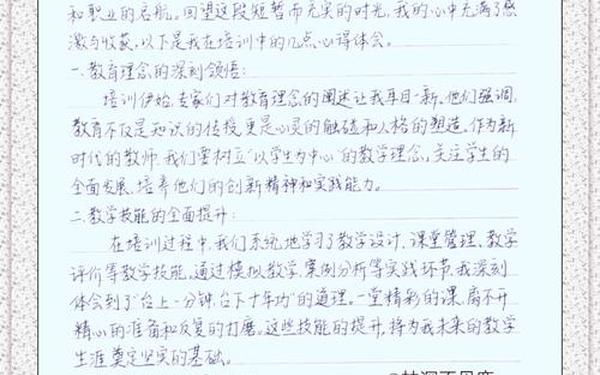 和职业的启航。回望这段短暂而充实的时光,我的心中充满了感
激与收获,以下是我在培训中的几点心得体会。
一.教育理念的深刻领悟:
培训伊始,专家们对教育理念的阐述让我耳目一新。他们强调,
教育不仅是知识的传授,更是心灵的触碰和人格的塑造。作为新
时代的教师,我们要树立“以学生为中心”的教学理念,关注学生的
全面发展,培养他们的创新精神和实践能力。
二.教学技能的全面提升:
在培训过程中,我们系统地学习了教学设计、课堂管理、教学
评价等教学技能,通过模拟教学、案例分析等实践环节,我深刻
体会到了“台上一分钟,台下十年功”的道理。一堂精彩的课,离不开
精心的准备和反复的打磨。这些技能的提升,将为我未来的教学
生涯奠定坚实的基础。